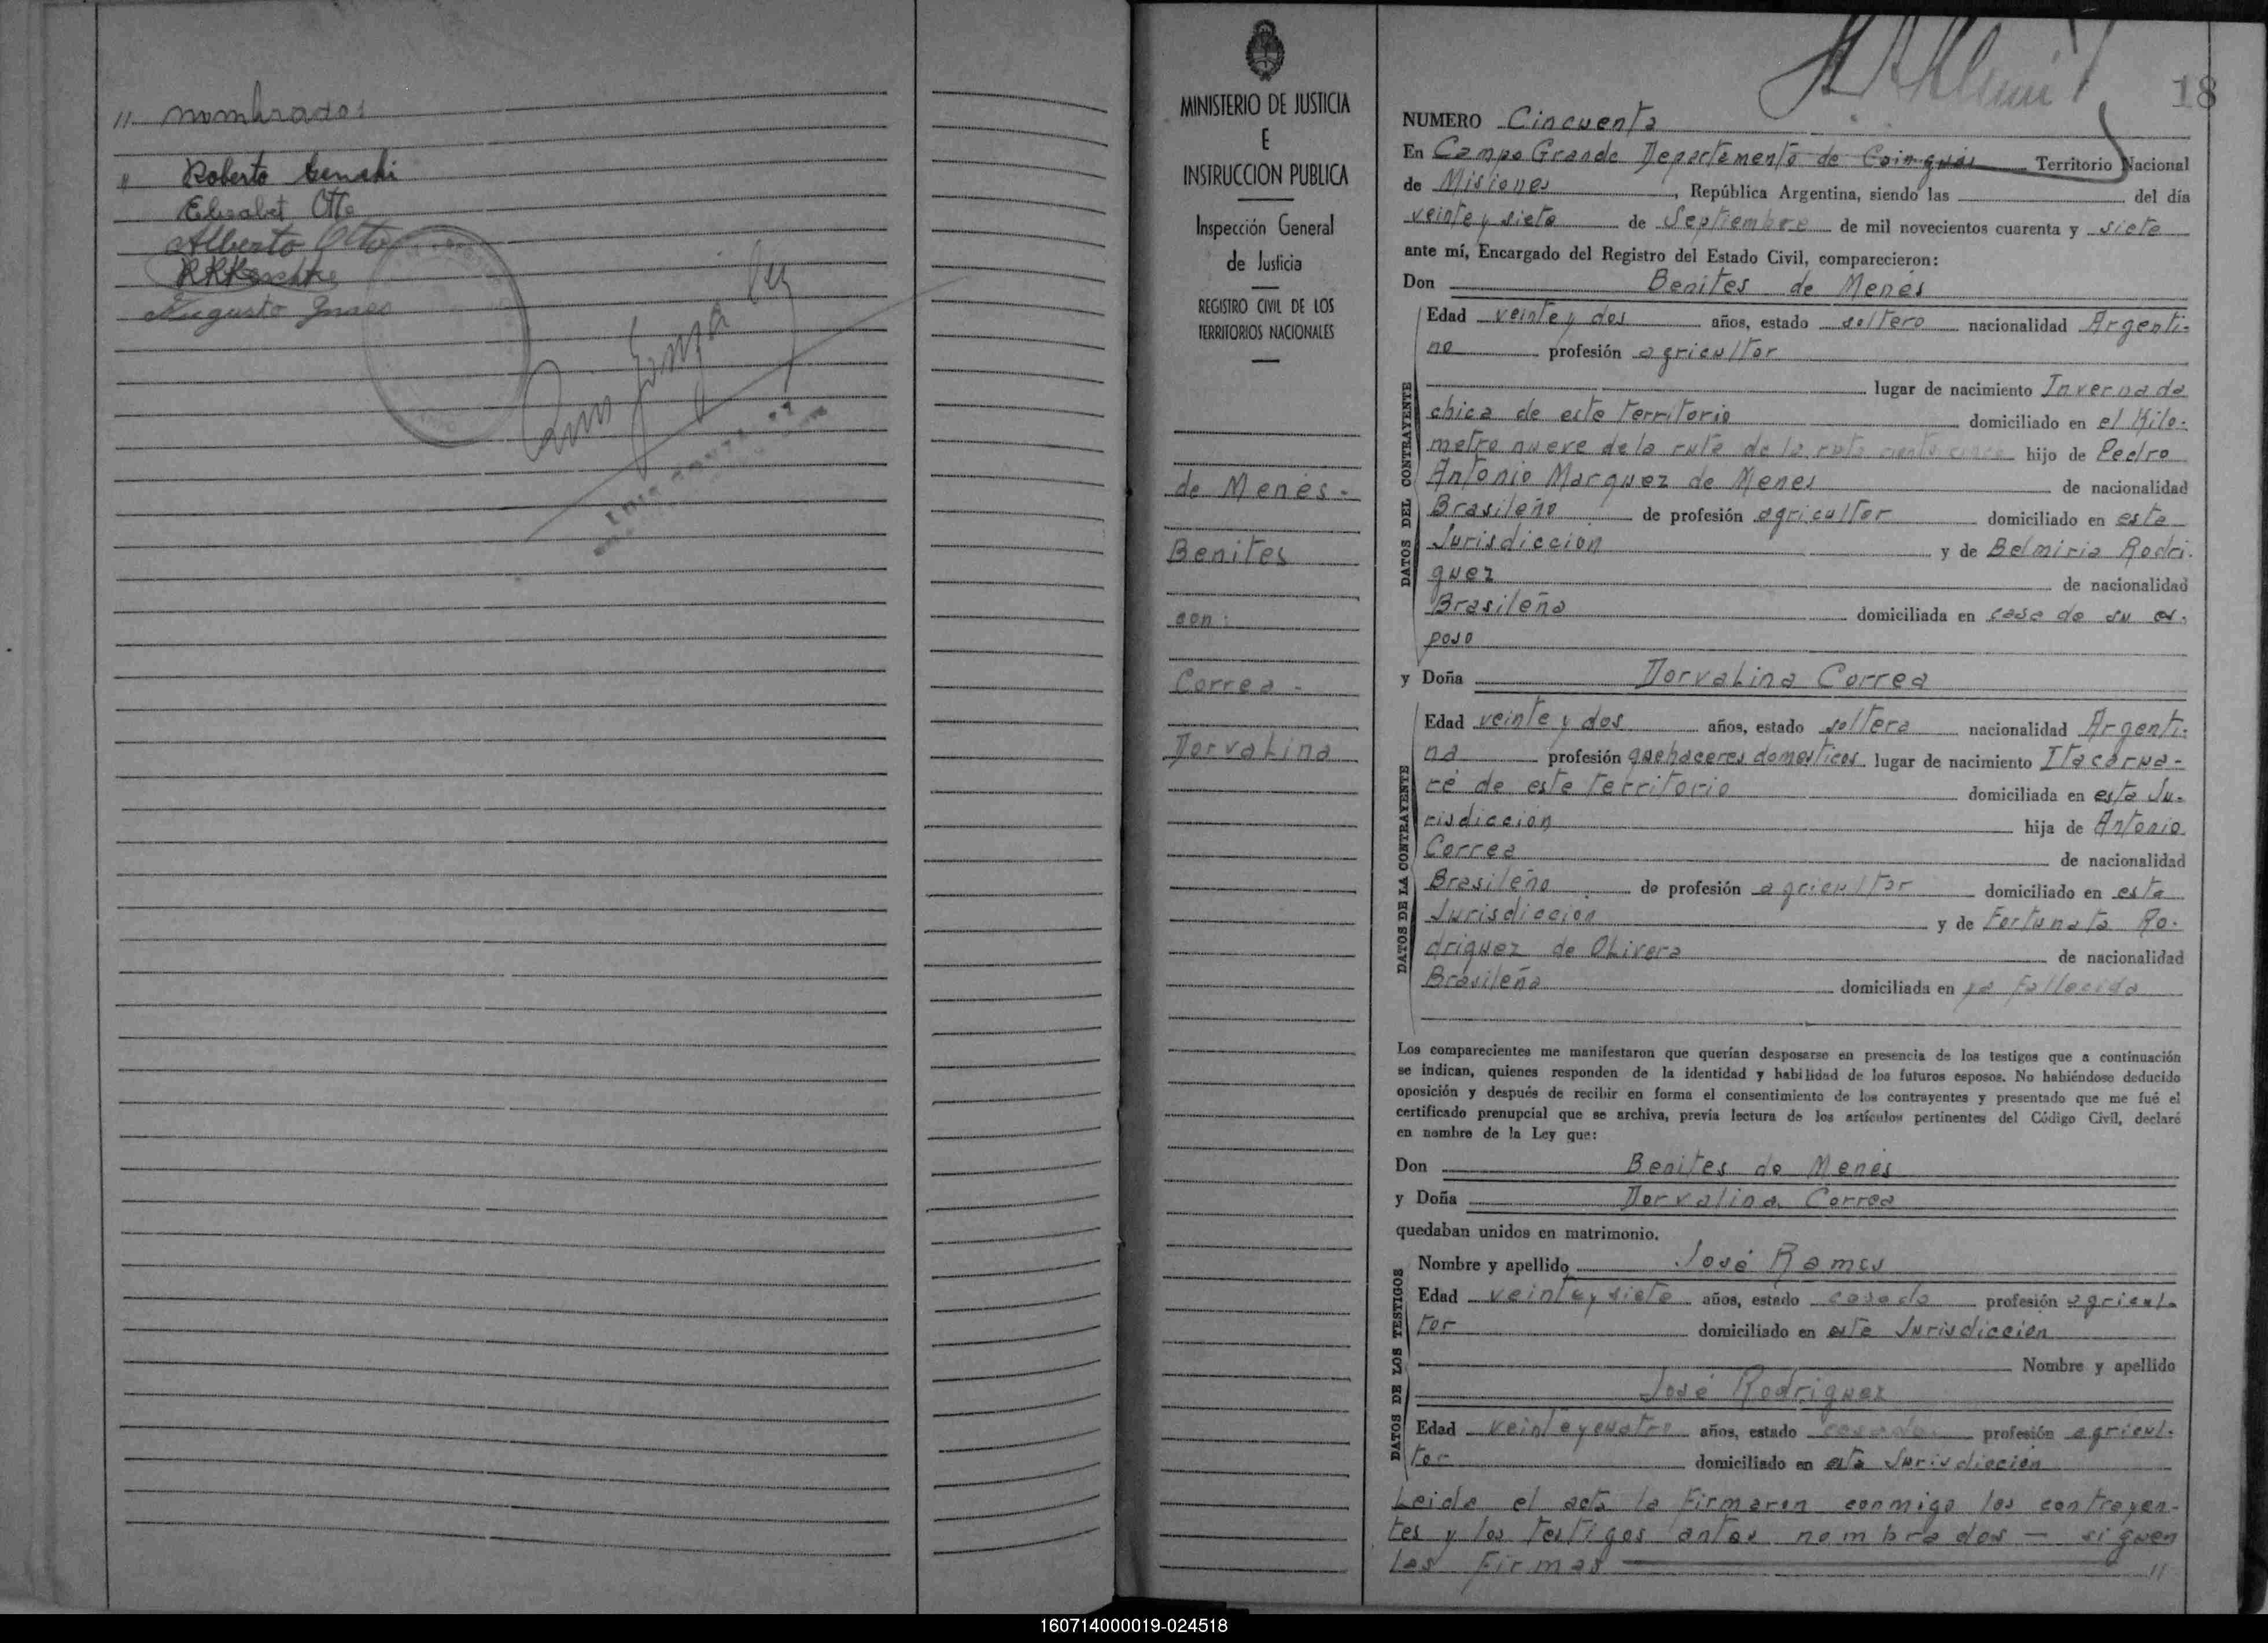 11 nombrados
Roberto
Elisabet Otto
Alberto Otto
Augusto
18
MINISTERIO DE JUSTICIA
E
INSTRUCCION PUBLICA
Inspección General
de Justicia
REGISTRO CIVIL DE LOS
TERRITORIOS NACIONALES
de Menés.-
Benites
con:
Correa -
Dorvalina
NUMERO Cincuenta
En Campo Grande Departamento de Cainguás Territorio Nacional
de Misiones, República Argentina, siendo las del día
veinte y siete de Septiembre de mil novecientos cuarenta y siete
ante mí, Encargado del Registro del Estado Civil, comparecieron:
Don Benites de Menés
DATOS DEL CONTRAYENTE
Edad veinte y dos años, estado soltero nacionalidad Argenti-
no profesión agricultor
lugar de nacimiento Invernada
chica de este territorio domiciliado en el Kilo-
metro nueve de la ruta de la ruta ciento cinco hijo de Pedro
Antonio Marquez de Menes de nacionalidad
Brasileño de profesión agricultor domiciliado en esta
Jurisdiccion y de Belmiria Rodri-
guez de nacionalidad
Brasileña domiciliada en casa de su es-
poso
y Doña Dorvalina Correa
DATOS DE LA CONTRAYENTE
Edad veinte y dos años, estado soltera nacionalidad Argenti-
na profesión quehaceres domesticos lugar de nacimiento Itacarua-
ré de este territorio domiciliada en esta Ju-
risdiccion hija de Antonio
Correa de nacionalidad
Brasileño de profesión agricultor domiciliado en esta
Jurisdiccion y de Fortunata Ro-
driguez de Olivera de nacionalidad
Brasileña domiciliada en ya fallecida
Los comparecientes me manifestaron que querían desposarse en presencia de los testigos que a continuación
se indican, quienes responden de la identidad y habilidad de los futuros esposos. No habiéndose deducido
oposición y después de recibir en forma el consentimiento de los contrayentes y presentado que me fué el
certificado prenupcial que se archiva, previa lectura de los artículos pertinentes del Código Civil, declaré
en nombre de la Ley que:
Don Benites de Menés
y Doña Dorvalina Correa
quedaban unidos en matrimonio.
DATOS DE LOS TESTIGOS
Nombre y apellido José Ramos
Edad veinte y siete años, estado casado profesión agricul-
tor domiciliado en esta Jurisdiccion
Nombre y apellido
José Rodriguez
Edad veinte y cuatro años, estado casado profesión agricul-
tor domiciliado en esta Jurisdiccion
Leida el acta la firmaron conmigo los contrayen-
tes y los testigos antes nombrados - siguen
las firmas 11
160714000019-024518